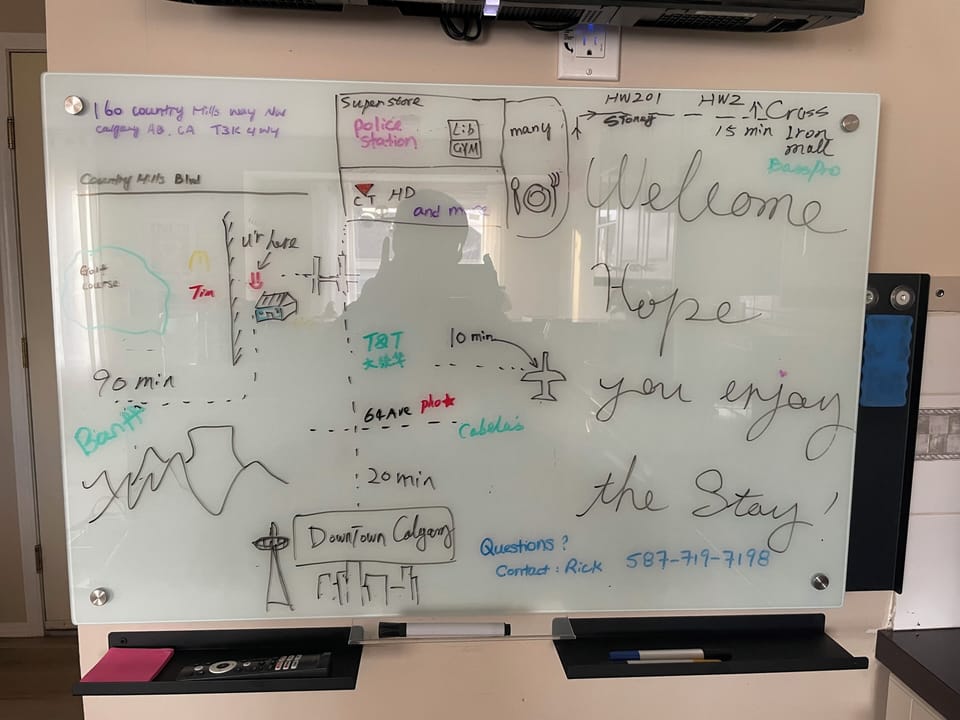 160 Country Hills Way NW
Calgary AB. CA T3K 4W4
Country Hills Blvd
Golf
Course
Tim
u'r here
90 min
Banff
Superstore
Police
Station
Lib
GYM
many
CT HD
and more
T&T
大统华
10 min
64 Ave pho
Cabela's
20 min
DownTown Calgary
HW201 HW2 Cross
Stoney 15 min Iron
mall
BassPro
Welcome
Hope
you enjoy
the Stay!
Questions?
Contact: Rick 587-719-7198